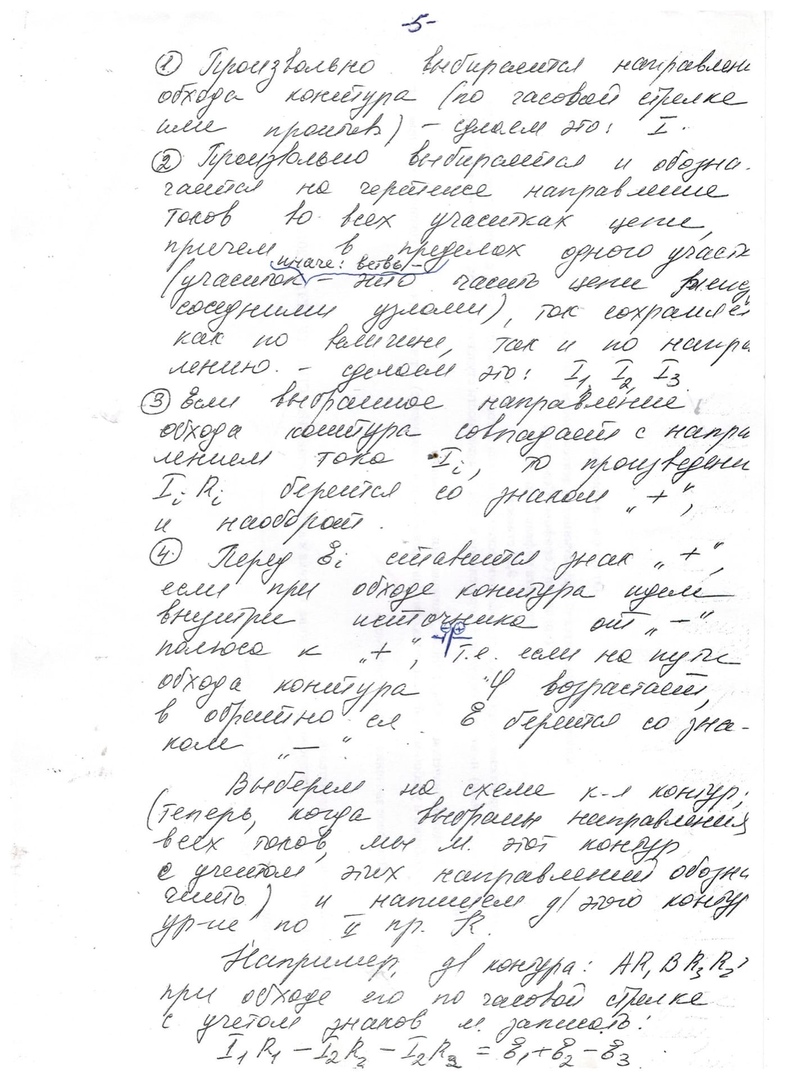 -5-
① Произвольно выбирается направлени
обхода контура (по часовой стрелке
или против) – сделаем это: I.
② Произвольно выбирается и обозна-
чается на чертеже направление
токов во всех участках цепи,
причем в пределах одного участк
иначе: ветвь –
(участок – это часть цепи между
соседними узлами), ток сохраняет
как по величине, так и по напра
лению. – сделаем это: I₁ I₂ I₃
③ Если выбранное направление
обхода контура совпадает с напра
лением тока Iᵢ, то произведени
IᵢRᵢ берется со знаком „+“,
и наоборот.
④ Перед Ɛᵢ ставится знак „+“,
если при обходе контура идем
внутри источника от „–“
полюса к „+“, т.е. если на пути
обхода контура φ возрастает,
в обратном сл. Ɛ берется со зна-
ком „–“
Выберем на схеме к-л контур;
(теперь, когда выбраны направления
всех токов, мы м. этот контур
с учетом этих направлений обозна
чить) и напишем д/ этого контур
ур-ие по II пр. К.
Например, д/ контура: AR₁BR₃R₂
при обходе его по часовой стрелке
с учетом знаков м. записать:
I₁R₁ – I₂R₂ – I₂R₃ = Ɛ₁+Ɛ₂–Ɛ₃